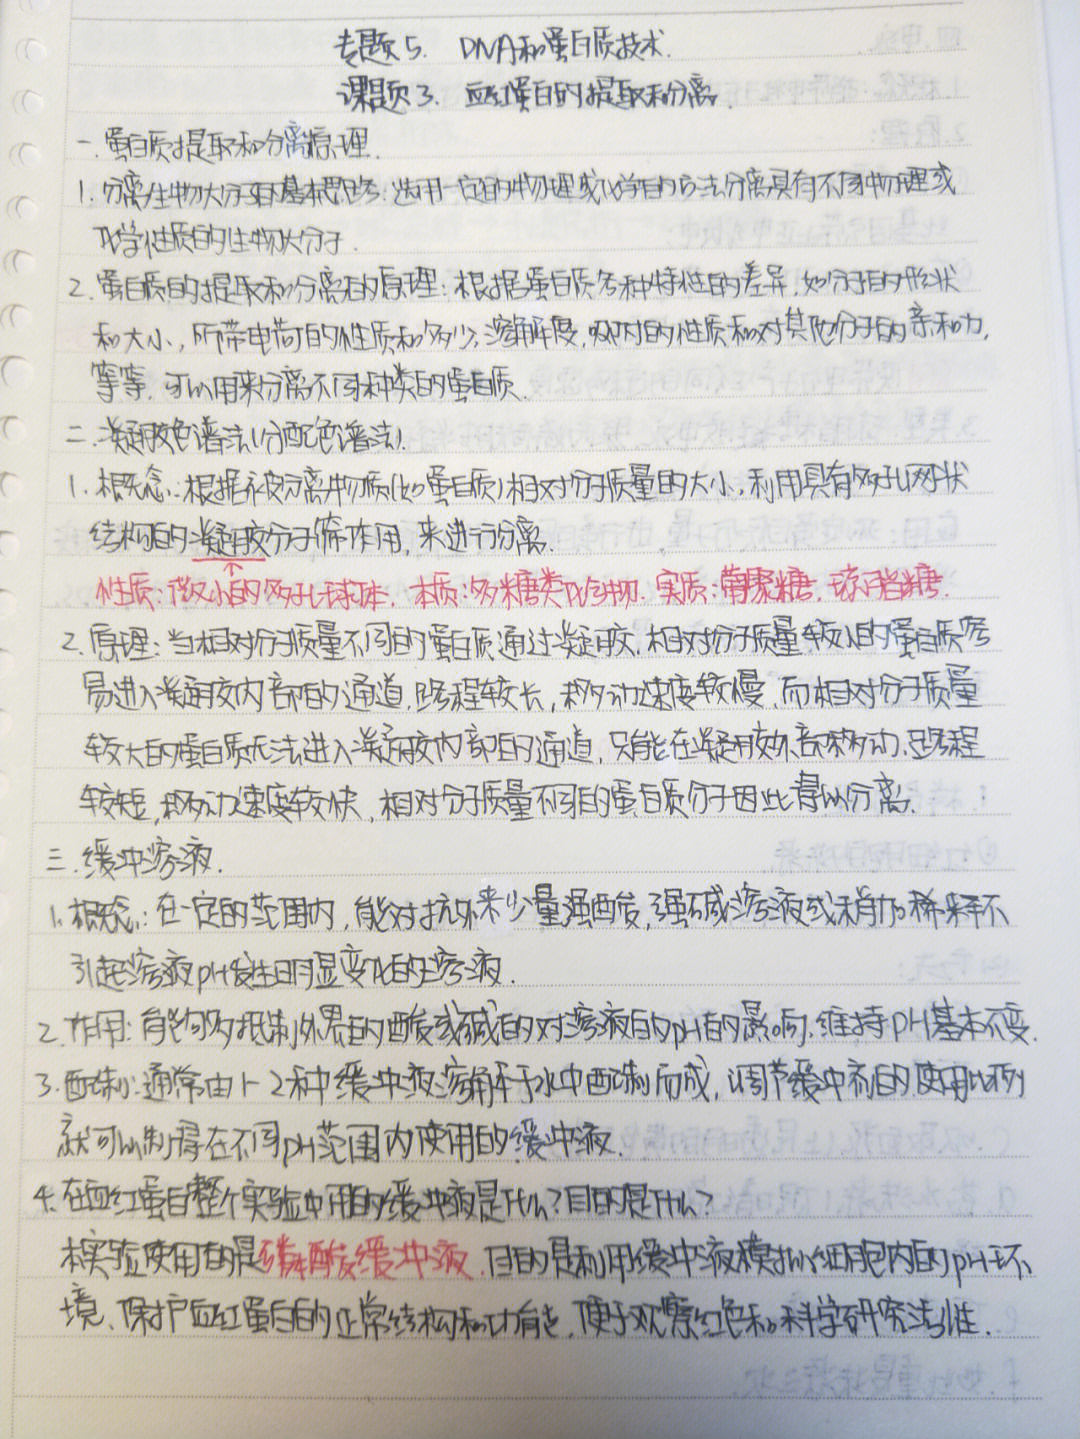 专题5. DNA和蛋白质技术.
课题3. 血红蛋白的提取和分离
一.蛋白质提取和分离原理.
1.分离生物大分子的基本思路:选用一定的物理或化学的方法分离具有不同物理或
化学性质的生物大分子.
2.蛋白质的提取和分离的原理:根据蛋白质各种特性的差异,如分子的形状
和大小,所带电荷的性质和多少,溶解度,吸附的性质和对其他分子的亲和力,
等等.可以用来分离不同种类的蛋白质.
二.凝胶色谱法(分配色谱法).
1.概念:根据被分离物质(如蛋白质)相对分子质量的大小,利用具有多孔网状
结构的凝胶分子筛作用,来进行分离.
性质:微小的多孔球体. 本质:多糖类化合物. 实质:葡聚糖.琼脂糖.
2.原理:当相对分子质量不同的蛋白质通过凝胶,相对分子质量较小的蛋白质容
易进入凝胶内部的通道,路程较长,移动速度较慢,而相对分子质量
较大的蛋白质无法进入凝胶内部的通道,只能在凝胶外部移动.路程
较短,移动速度较快,相对分子质量不同的蛋白质分子因此得以分离.
三.缓冲溶液.
1.概念:在一定的范围内,能对抗外来少量强酸,强碱溶液或稍加稀释不
引起溶液pH发生明显变化的溶液.
2.作用:能够抵制外界的酸或碱的对溶液的pH的影响.维持pH基本不变.
3.配制:通常由1-2种缓冲液溶解于水中配制而成,调节缓冲剂的使用比例
就可以制得在不同pH范围内使用的缓冲液.
4.在血红蛋白整个实验中用的缓冲液是什么?目的是什么?
本实验使用的是磷酸缓冲液.目的是利用缓冲液模拟细胞内的pH环
境、保护血红蛋白的正常结构和功能,便于观察红色和科学研究活性.